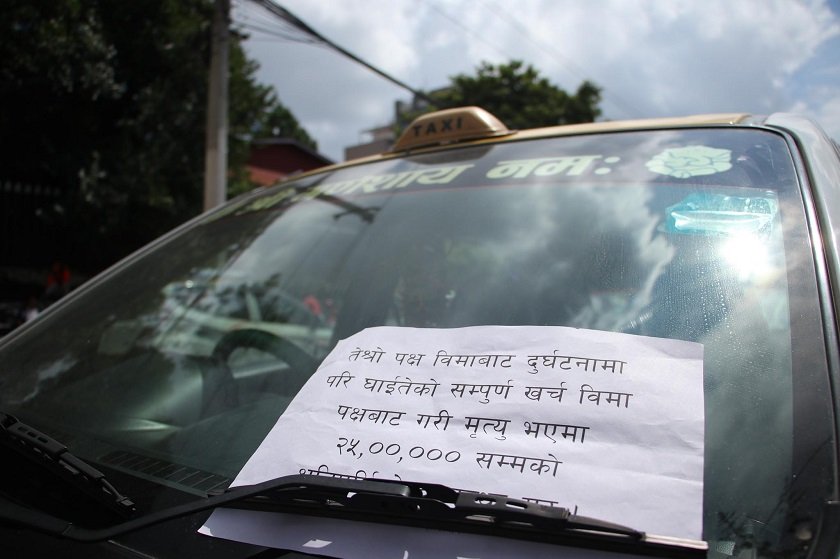 TAXI
नमः
तेश्रो पक्ष विमाबाट दुर्घटनामा
परि घाईतेको सम्पुर्ण खर्च विमा
पक्षबाट गरी मृत्यु भएमा
२५,००,००० सम्मको